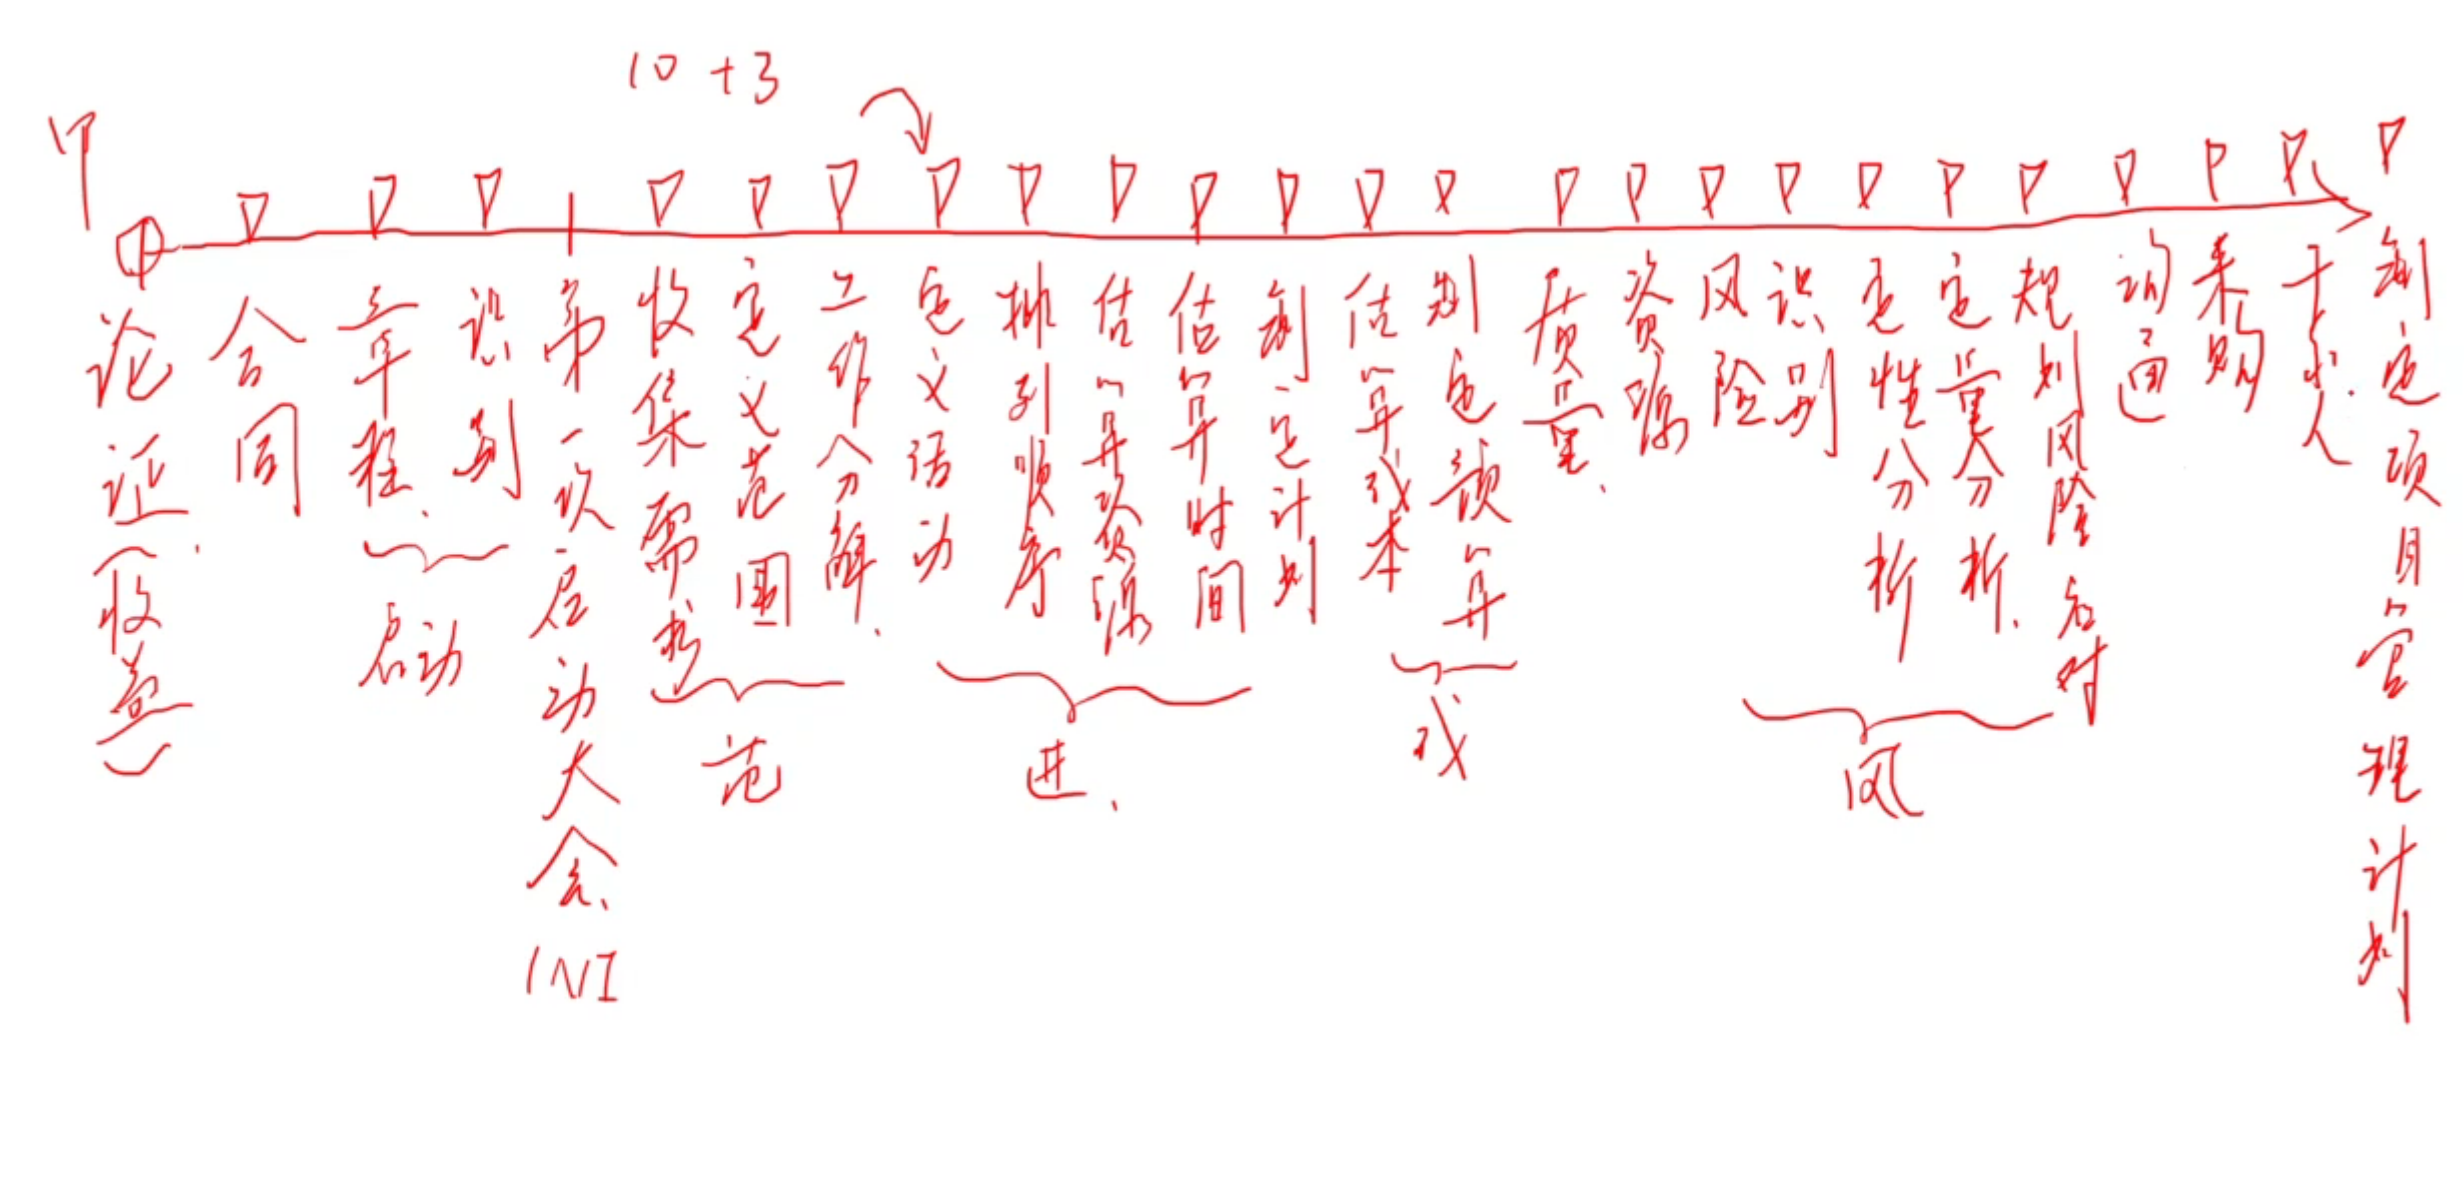 10 + 3
论证(收益)
合同
章程
识别
启动
第一次启动大会
INI
收集需求
定义范围
工作分解
范
定义活动
排列顺序
估算资源
估算时间
制定计划
进
估算成本
制定预算
成
质量
资源
风险
识别
定性分析
定量分析
规划风险应对
风
沟通
采购
干系人
制定项目管理计划